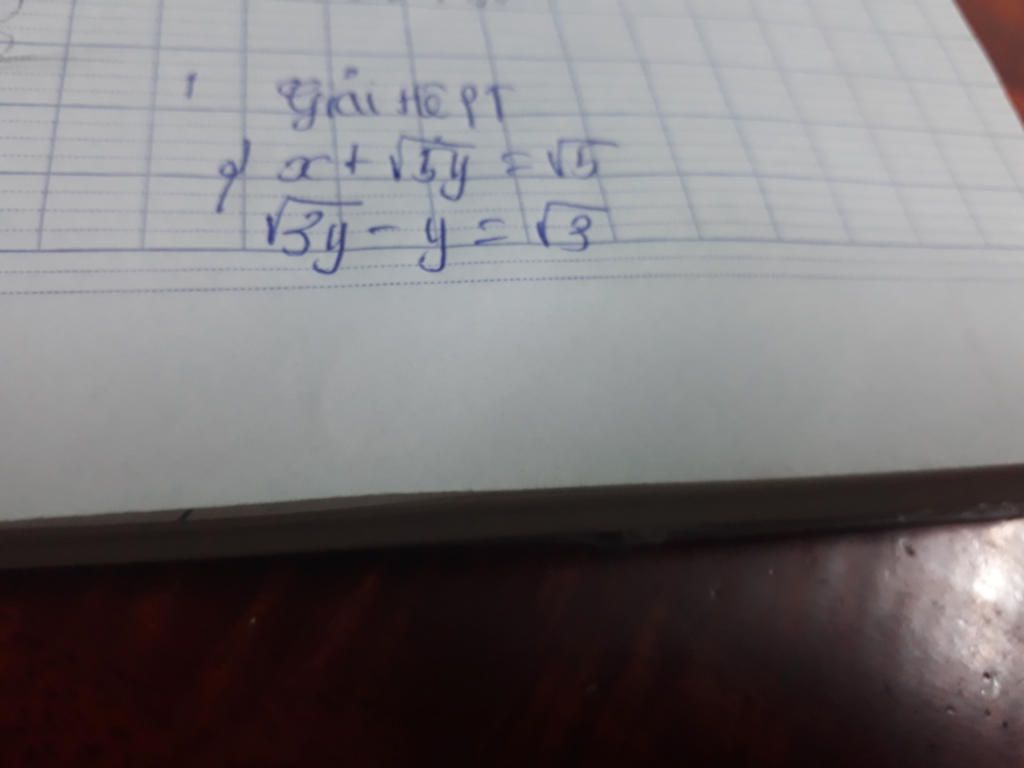 1 Giải HỆ PT
x + √5y = √5
√3y - y = √3